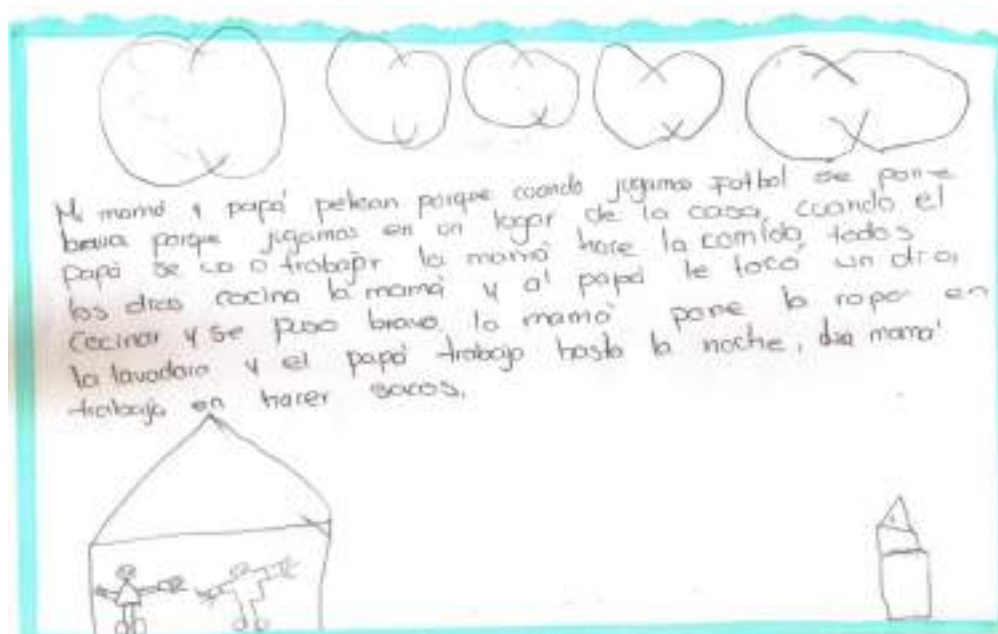 Mi mamá y papá pelean porque cuando jugamos Fotbol se pone
brava porque jugamos en un logar de la casa, cuando el
papá se va a trabajar la mamá hace la comida, todos
los dias cocina la mamá y al papá le tocó un dia,
cocinar y se puso bravo, la mamá pone la ropa en
la lavadora y el papá trabaja hasta la noche, mamá
trabaja en hacer sacos.